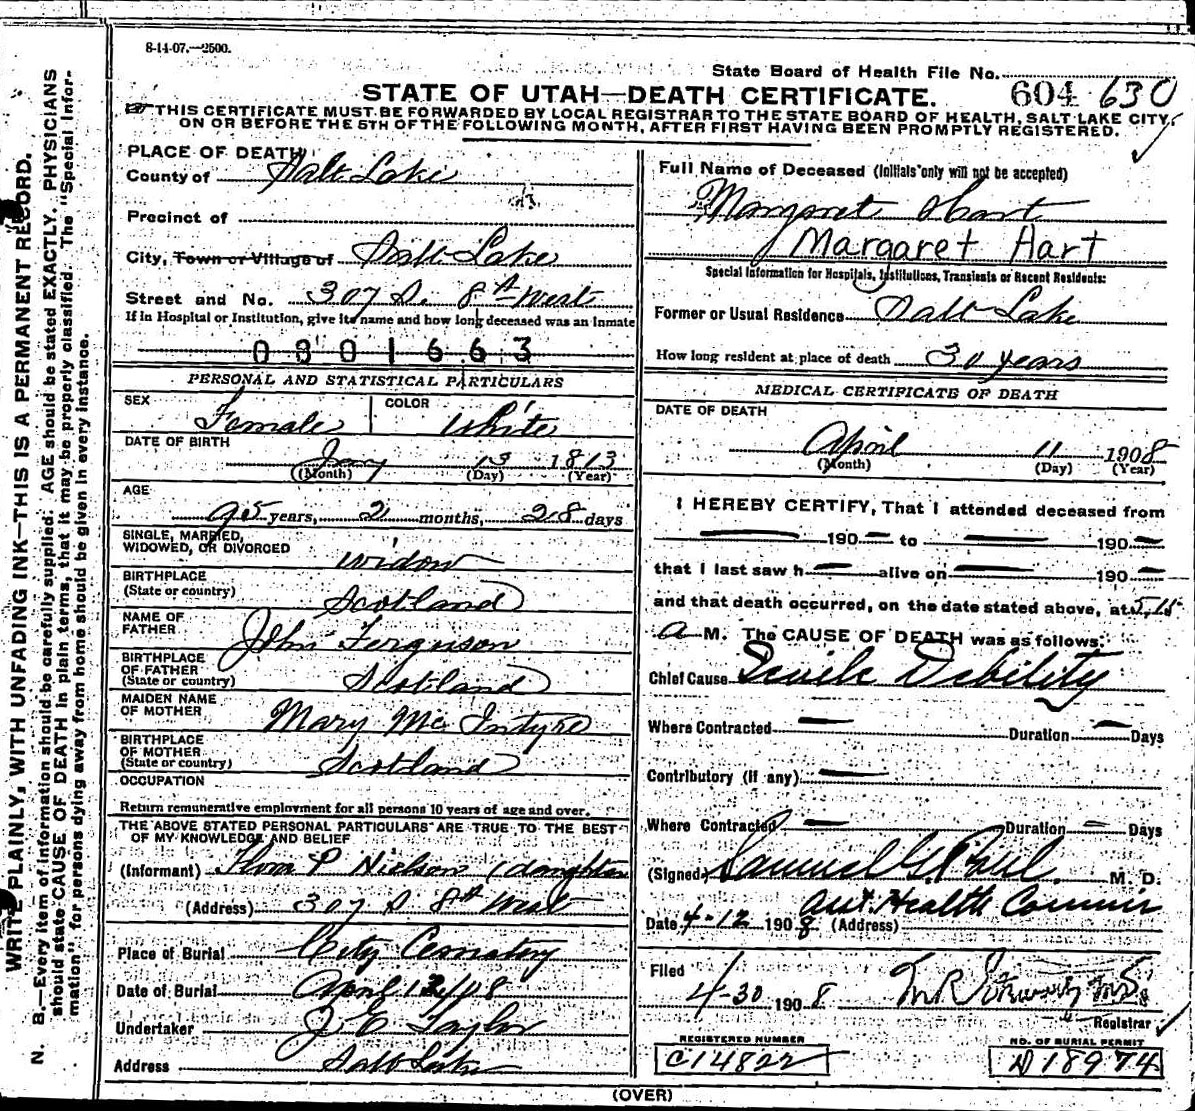 8-14-07.—2500.
State Board of Health File No.
604 630
STATE OF UTAH—DEATH CERTIFICATE.
THIS CERTIFICATE MUST BE FORWARDED BY LOCAL REGISTRAR TO THE STATE BOARD OF HEALTH, SALT LAKE CITY,
ON OR BEFORE THE 5TH OF THE FOLLOWING MONTH, AFTER FIRST HAVING BEEN PROMPTLY REGISTERED.
WRITE PLAINLY, WITH UNFADING INK—THIS IS A PERMANENT RECORD.
N. B.—Every item of information should be carefully supplied. AGE should be stated EXACTLY. PHYSICIANS
should state CAUSE OF DEATH in plain terms, that it may be properly classified. The "Special Infor-
mation" for persons dying away from home should be given in every instance.
PLACE OF DEATH
County of Salt Lake
Precinct of
City, Town or Village of Salt Lake
Street and No. 307 S. 8th West
If in Hospital or Institution, give its name and how long deceased was an Inmate
0301663
PERSONAL AND STATISTICAL PARTICULARS
SEX Female COLOR White
DATE OF BIRTH
Jany 13 1813
(Month) (Day) (Year)
AGE
95 years, 2 months, 28 days
SINGLE, MARRIED,
WIDOWED, OR DIVORCED widow
BIRTHPLACE
(State or country) Scotland
NAME OF
FATHER John Ferguson
BIRTHPLACE
OF FATHER
(State or country) Scotland
MAIDEN NAME
OF MOTHER Mary Mc Intyre
BIRTHPLACE
OF MOTHER
(State or country) Scotland
OCCUPATION
Return remunerative employment for all persons 10 years of age and over.
THE ABOVE STATED PERSONAL PARTICULARS ARE TRUE TO THE BEST
OF MY KNOWLEDGE AND BELIEF
(Informant) P Nielson (daughter
(Address) 307 S 8th West
Place of Burial City Cemetery
Date of Burial April 13/08
Undertaker Taylor
Address Salt Lake
Full Name of Deceased (Initials only will not be accepted)
Margaret Hart
Margaret Hart
Special Information for Hospitals, Institutions, Transients or Recent Residents:
Former or Usual Residence Salt Lake
How long resident at place of death 30 years
MEDICAL CERTIFICATE OF DEATH
DATE OF DEATH
April 11 1908
(Month) (Day) (Year)
I HEREBY CERTIFY, That I attended deceased from
— 190— to — 190—
that I last saw h— alive on — 190—
and that death occurred, on the date stated above, at 5,15
a M. The CAUSE OF DEATH was as follows:
Chief Cause Senile Debility
Where Contracted — Duration — Days
Contributory (If any) —
Where Contracted — Duration — Days
(Signed) Samuel G. Paul M. D.
Date 4-12 1908 (Address) Health Commir
Filed
4-30 1908
Registrar
REGISTERED NUMBER
C14822
NO. OF BURIAL PERMIT
D18974
(OVER)